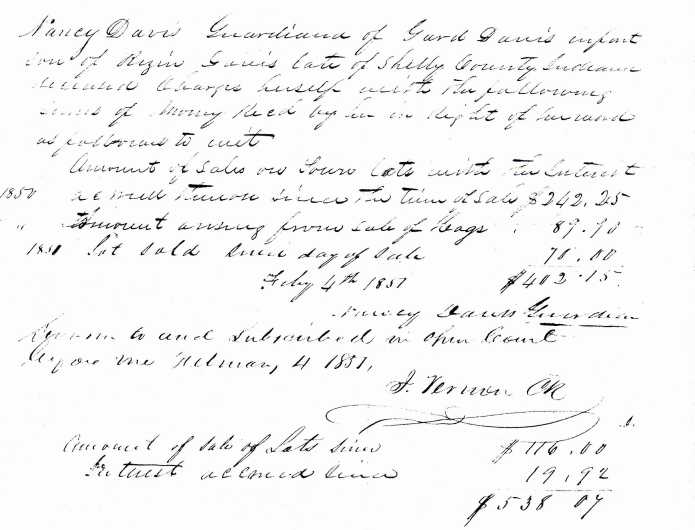 Nancy Davis Guardiand of Gard Davis infant
son of Rezin Davis late of Shelby County Indiana
deceased Charges herself with the following
sums of Money Recd by her in Right of her ward
as follows to wit
Amount of Sales on Town Lots with the Interest
1850 accrued thereon since the time of Sale $242.25
" Amount arising from Sale of Hogs 89.90
1851 Lot Sold Since day of Sale 70.00
Feby 4th 1851 $402.15
Nancy Davis Guardian
Sworn to and Subscribed in Open Court
before me February 4 1851,
J. Vernon Clk
Amount of Sale of Lots Since $116.00
Interest accrued Since 19,92
$538 07